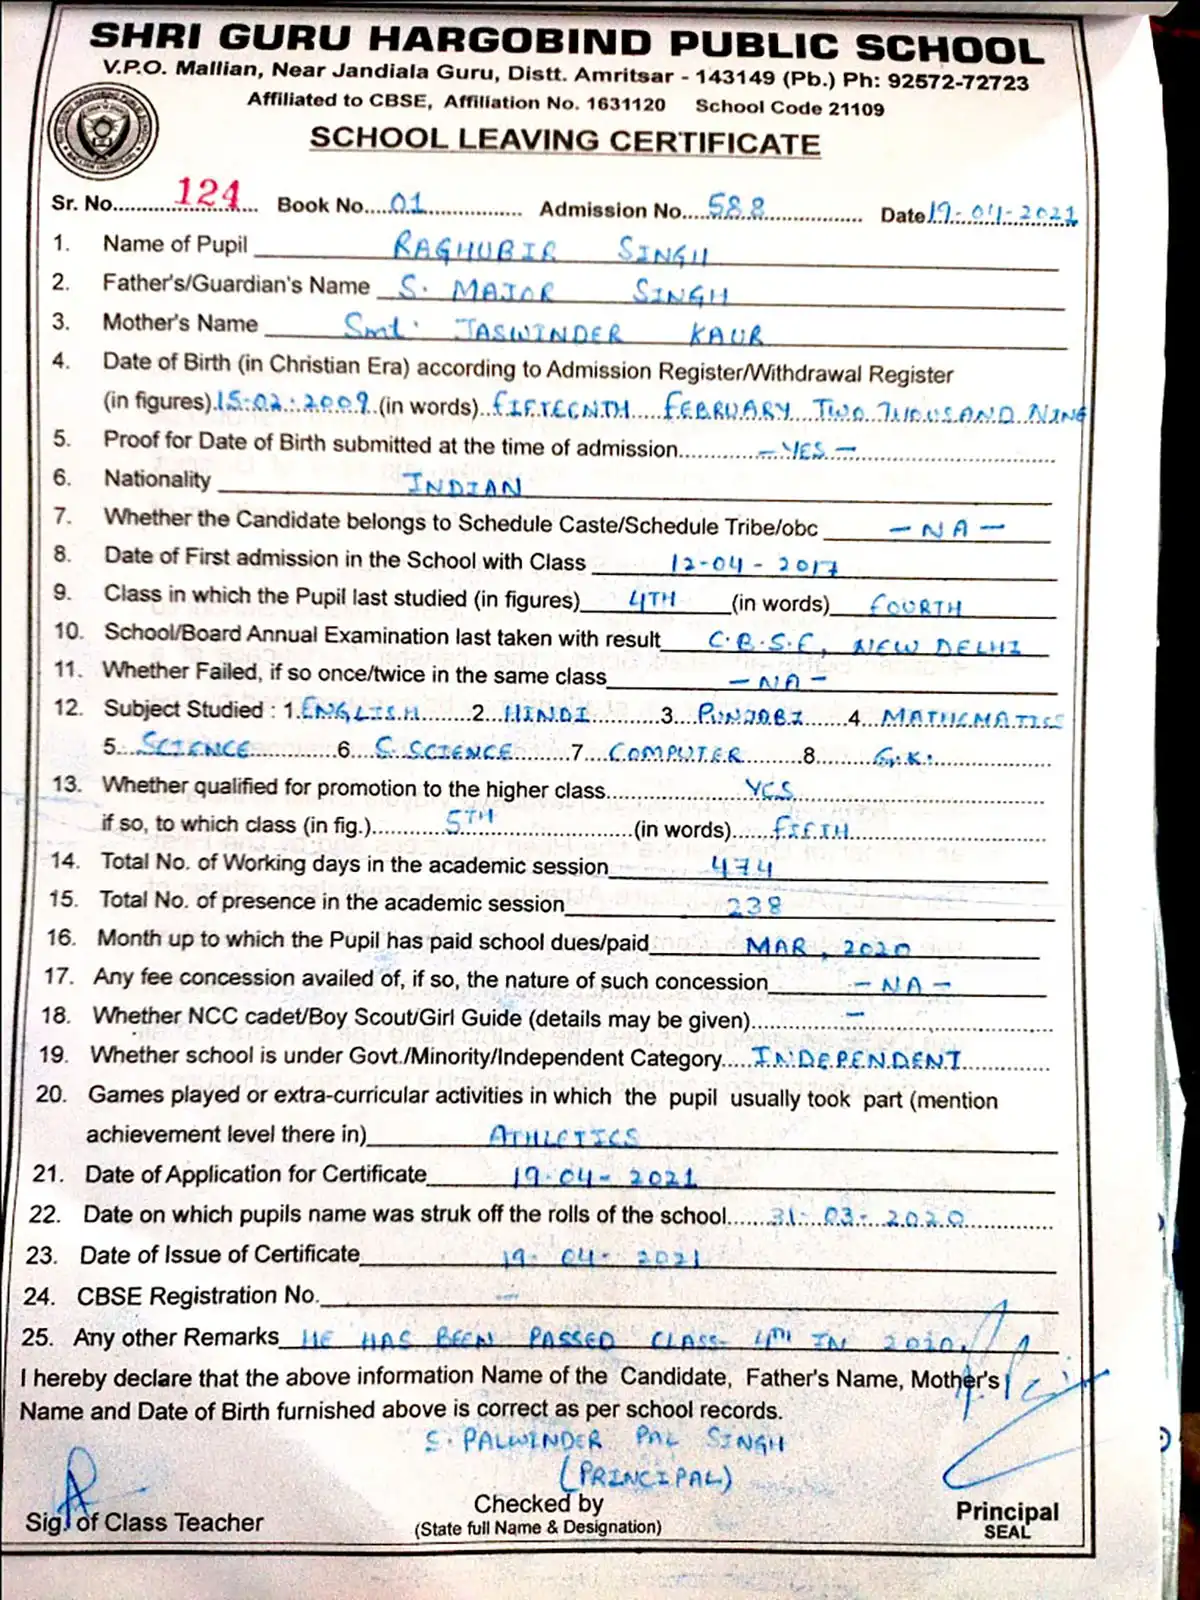 SHRI GURU HARGOBIND PUBLIC SCHOOL
V.P.O. Mallian, Near Jandiala Guru, Distt. Amritsar - 143149 (Pb.) Ph: 92572-72723
Affiliated to CBSE, Affiliation No. 1631120 School Code 21109
SCHOOL LEAVING CERTIFICATE
Sr. No. 124 Book No. 01 Admission No. 588 Date 19-04-2021
1. Name of Pupil RAGHUBIR SINGH
2. Father's/Guardian's Name S. MAJOR SINGH
3. Mother's Name Smt. JASWINDER KAUR
4. Date of Birth (in Christian Era) according to Admission Register/Withdrawal Register
(in figures) 15-02-2009 (in words) FIFTEENTH FEBRUARY TWO THOUSAND NINE
5. Proof for Date of Birth submitted at the time of admission - YES -
6. Nationality INDIAN
7. Whether the Candidate belongs to Schedule Caste/Schedule Tribe/obc - NA -
8. Date of First admission in the School with Class 12-04-2017
9. Class in which the Pupil last studied (in figures) 4TH (in words) FOURTH
10. School/Board Annual Examination last taken with result C.B.S.E, NEW DELHI
11. Whether Failed, if so once/twice in the same class - NA -
12. Subject Studied : 1. ENGLISH 2. HINDI 3. PUNJABI 4. MATHEMATICS
5. SCIENCE 6. S. SCIENCE 7. COMPUTER 8. G.K.
13. Whether qualified for promotion to the higher class YES
if so, to which class (in fig.) 5TH (in words) FIFTH
14. Total No. of Working days in the academic session 474
15. Total No. of presence in the academic session 238
16. Month up to which the Pupil has paid school dues/paid MAR, 2020
17. Any fee concession availed of, if so, the nature of such concession - NA -
18. Whether NCC cadet/Boy Scout/Girl Guide (details may be given) -
19. Whether school is under Govt./Minority/Independent Category INDEPENDENT
20. Games played or extra-curricular activities in which the pupil usually took part (mention
achievement level there in) ATHLETICS
21. Date of Application for Certificate 19-04-2021
22. Date on which pupils name was struk off the rolls of the school 31-03-2020
23. Date of Issue of Certificate 19-04-2021
24. CBSE Registration No. -
25. Any other Remarks HE HAS BEEN PASSED CLASS 4TH IN 2020.
I hereby declare that the above information Name of the Candidate, Father's Name, Mother's
Name and Date of Birth furnished above is correct as per school records.
S. PALWINDER PAL SINGH
(PRINCIPAL)
Sig. of Class Teacher
Checked by
(State full Name & Designation)
Principal
SEAL